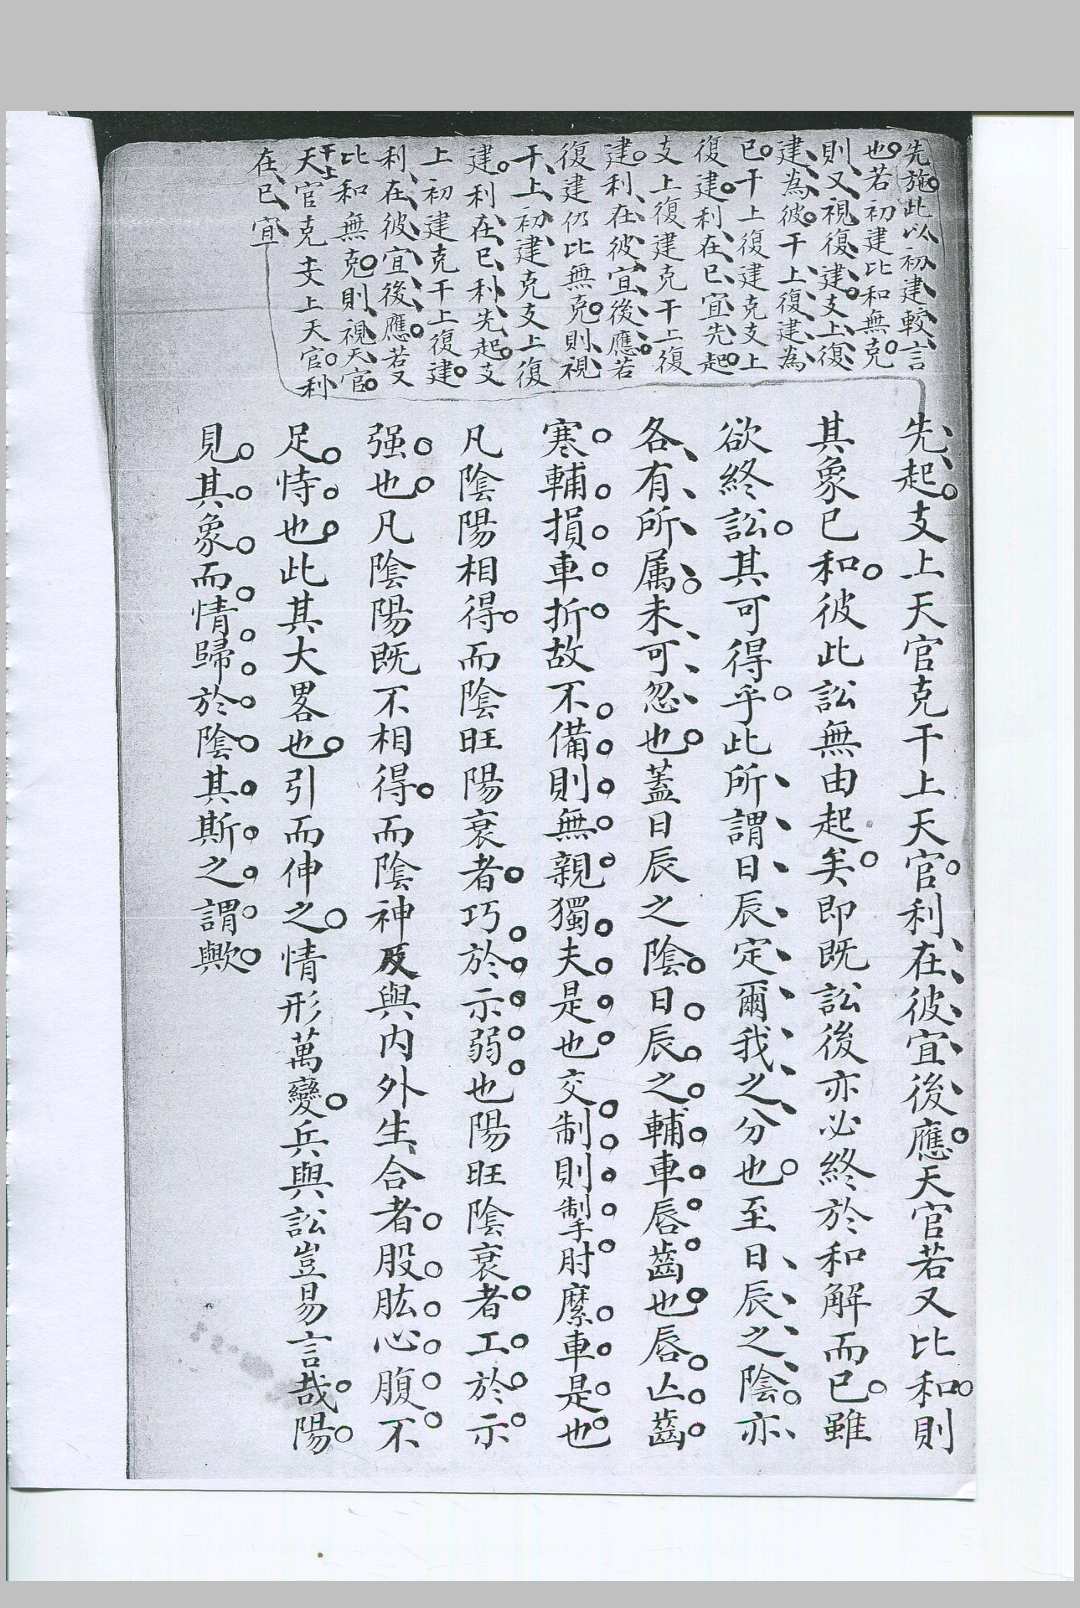 先施此以初建較言
也若初建比和無克
則又視復建支上復
建為彼干上復建為
已干上復建克支上
復建利在已宜先起
支上復建克干上復
建利在彼宜後應若
復建仍比無克則視
干上初建克支上復
建利在已利先起支
上初建克干上復建
利在彼宜後應若又
比和無克則視天官
干上
天官克支上天官利
在已宜
先起支上天官克干上天官利在彼宜後應天官若又比和則
其象已和彼此訟無由起矣即既訟後亦必終於和解而已雖
欲終訟其可得乎此所謂日辰定爾我之分也至日辰之陰亦
各有所属未可忽也蓋日辰之陰日辰之輔車唇齒也唇亾齒
寒輔損車折故不備則無親獨夫是也交制則掣肘縻車是也
凡陰陽相得而陰旺陽衰者巧於示弱也陽旺陰衰者工於示
强也凡陰陽既不相得而陰神及與內外生合者股肱心腹不
足恃也此其大畧也引而伸之情形萬變兵與訟豈易言哉陽
見其象而情歸於陰其斯之謂歟